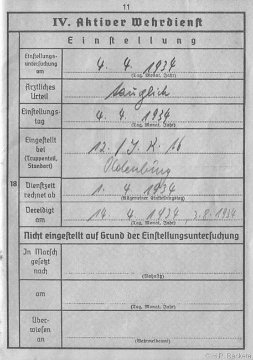 11
IV. Aktiver Wehrdienst
Einstellung
Einstellungs-
untersuchung
am
4. 4. 1934
(Tag, Monat, Jahr)
Ärztliches
Urteil
tauglich
Einstellungs-
tag
4. 4. 1934
(Tag, Monat, Jahr)
Eingestellt
bei
(Truppenteil,
Standort)
12. / J. R. 16
Oldenburg
18
Dienstzeit
rechnet ab
1. 4. 1934
(Allgemeiner Einstellungstag)
Vereidigt
am
14. 4. 1934 2. 8. 1934
(Tag, Monat, Jahr)
Nicht eingestellt auf Grund der Einstellungsuntersuchung
In Marsch
gesetzt
nach
(Wohnsitz)
am
(Tag, Monat, Jahr)
Über-
wiesen
an
(Wehrmeldeamt)